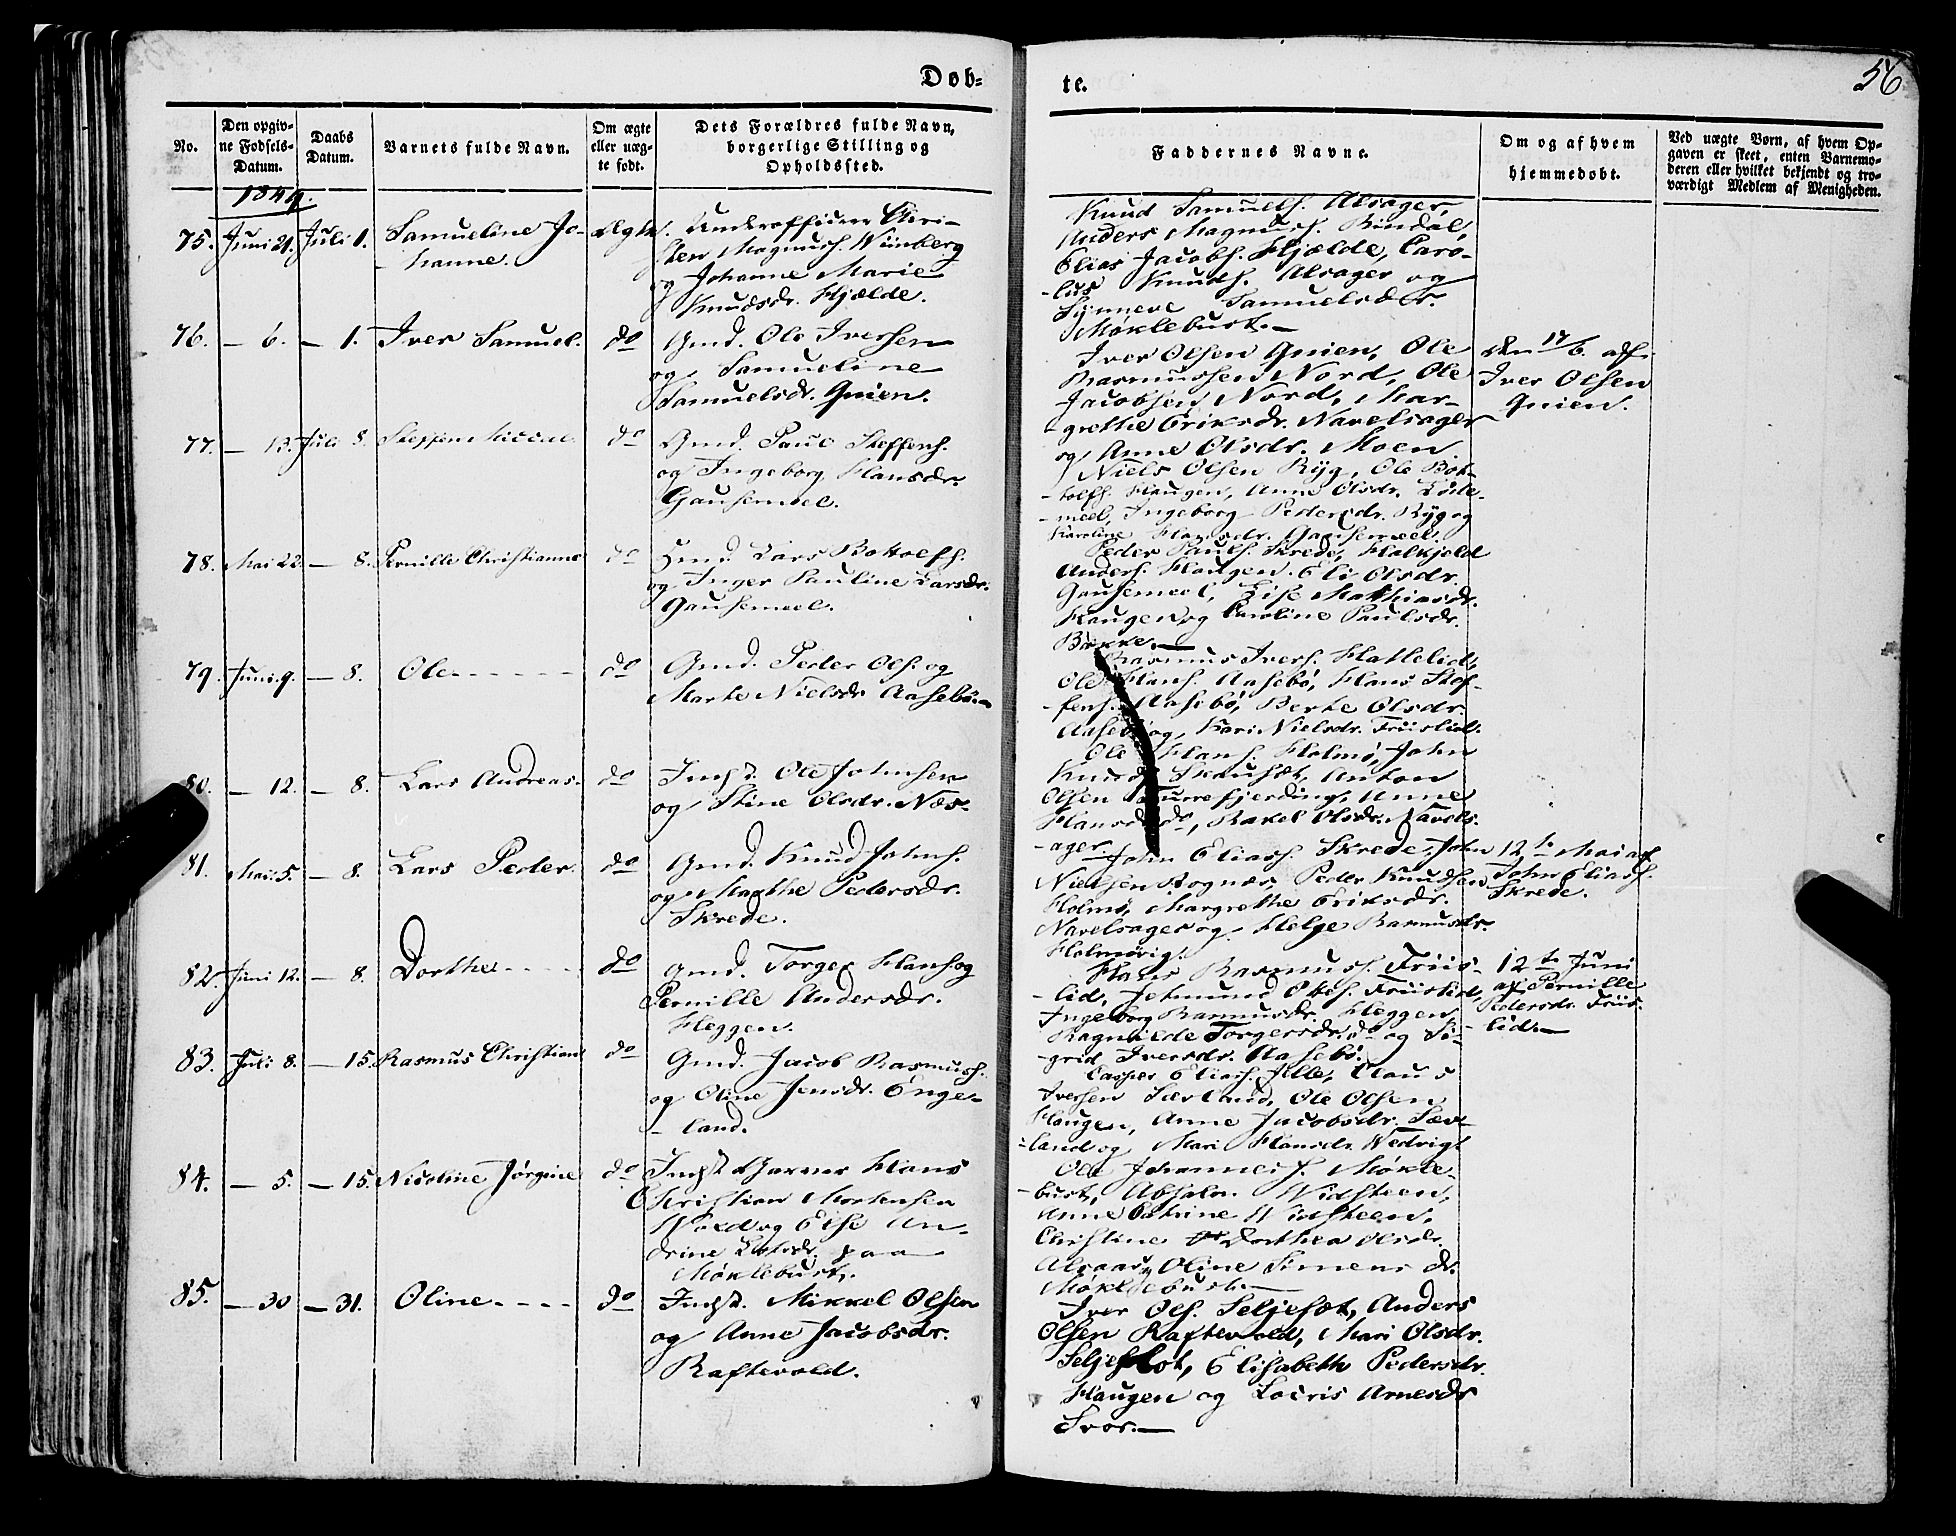 Døb-
te.
56
No.
Den opgiv-
ne Fødsels-
Datum.
Daabs
Datum.
Barnets fulde Navn.
Om ægte
eller uæg-
te født.
Dets Forældres fulde Navn,
borgerlige Stilling og
Opholdssted.
Faddernes Navne.
Om og af hvem
hjemmedøbt.
Ved uægte Børn, af hvem Op-
gaven er skeet, enten Barnemo-
deren eller hvilket bekjendt og tro-
værdigt Medlem af Menigheden.
1849.
75. Juni 21. Juli 1. Samueline Jo-
hanne.
Underofficeer Chri-
sten Magnus.
og Johanne Marie
Knudsdr. Hjelde.
Knud Samuels. Alsager,
Anders Magnus. Rindal,
Elias Jacobs. Hjælde, Caro-
lus Knuds. Alsager og
Synneve Samuelsdr.
Møklebust.
76. — 6. — 1. Iver Samuel. do
Gmd. Ole Iversen
og Samueline
Samuelsdr. Gnien.
Iver Olsen Gnien, Ole
Rasmussen Nord, Ole
Jacobsen Nord, Mar-
grethe Eriksdr. Navelsager
og Anne Olsdr. Moen
den 17/6. af
Iver Olsen
Gnien.
77. — 13. Juli 8. Steffen do
Gmd. Paul Steffens.
og Ingeborg Hansdr.
Gausemeel.
Niels Olsen Ryg, Ole Bot-
tolfs. Haugen, Anne Olsdr.
Ingeborg Pedersdr. Ryg og
Karoline Hansdr. Gausemeel.
78. Mai 22. — 8. Pernille Christianne do
Lars Bottolfs.
og Inger Pauline Larsdr.
Gausemeel.
Peder Pauls. Skrede, Halkjeld
Anders. Haugen, Eli Olsdr.
Gausemeel, Lise Matthiasdr.
Haugen og Caroline Paulsdr.
79. Juni 9. — 8. Ole do
Gmd. Peder Ols. og
Marte Nielsdr. Aasebø.
Rasmus Ivers. Hattelid,
Ole Hans. Aasebø, Hans Stef-
fens. Aasebø, Berte Olsdr.
Aasebø og Kari Nielsdr. Friislid.
80. — 12. — 8. Lars Andreas. do
Indst. Ole Johnsen
og Stine Olsdr. Næs.
Ole Hans. Holmø, John
Knuds. Anton
Olsen Tuurefjerding, Anne
Hansdr. do, Rakel Olsdr. Navels-
ager.
81. Mai 5. — 8. Lars Peder. do
Gmd. Knud Johns.
og Marthe Pedersdr.
Skrede.
John Elias. Skrede, John
Nielsen Rognæs, Peder Knudsen
Holmø, Margrethe Eriksdr.
Navelsager og Helge Rasmusdr.
Holmøvig.
12te Mai af
John Elias.
Skrede.
82. Juni 12. — 8. Dorthe do
Gmd. Torger Hans. og
Pernille Andersdr.
Heggen.
Hans Rasmus. Friis-
lid, Jetmund Friislid,
Ingeborg Rasmusdr. Heggen,
Ragnhilde Torgersdr. do og Si-
grid Iversdr. Aasebø.
12te Juni
af Pernille
Pedersdr. Friis-
lid.
83. Juli 8. — 15. Rasmus Christian do
Gmd. Jacob Rasmus.
og Oline Jensdr. Enge-
land.
Casper Elias. Claus
Iversen Sævland, Ole Olsen
Haugen, Anne Jacobsdr. Sæv-
land og Mari Hansdr. Vedvig
84. — 5. — 15. Nicoline Jørgine do
Indst. Garver Hans
Christian Mortensen
Wold og Else An-
drine paa
Møklebust.
Ole Johannes. Møkle-
bust, Absalon Widsteen,
Anne Catrine Widsteen,
Christine Dorthea Olsdr.
Oline Simensdr.
Møklebust.
85. — 30 — 31. Oline do
Indst. Mikkel Olsen
og Anne Jacobsdr.
Raftevold.
Iver Ols. Seljeset, Anders
Olsen Raftevold, Mari Olsdr.
Elisabeth Pedersdr.
Haugen og Lovris Arnesdr
Svor.